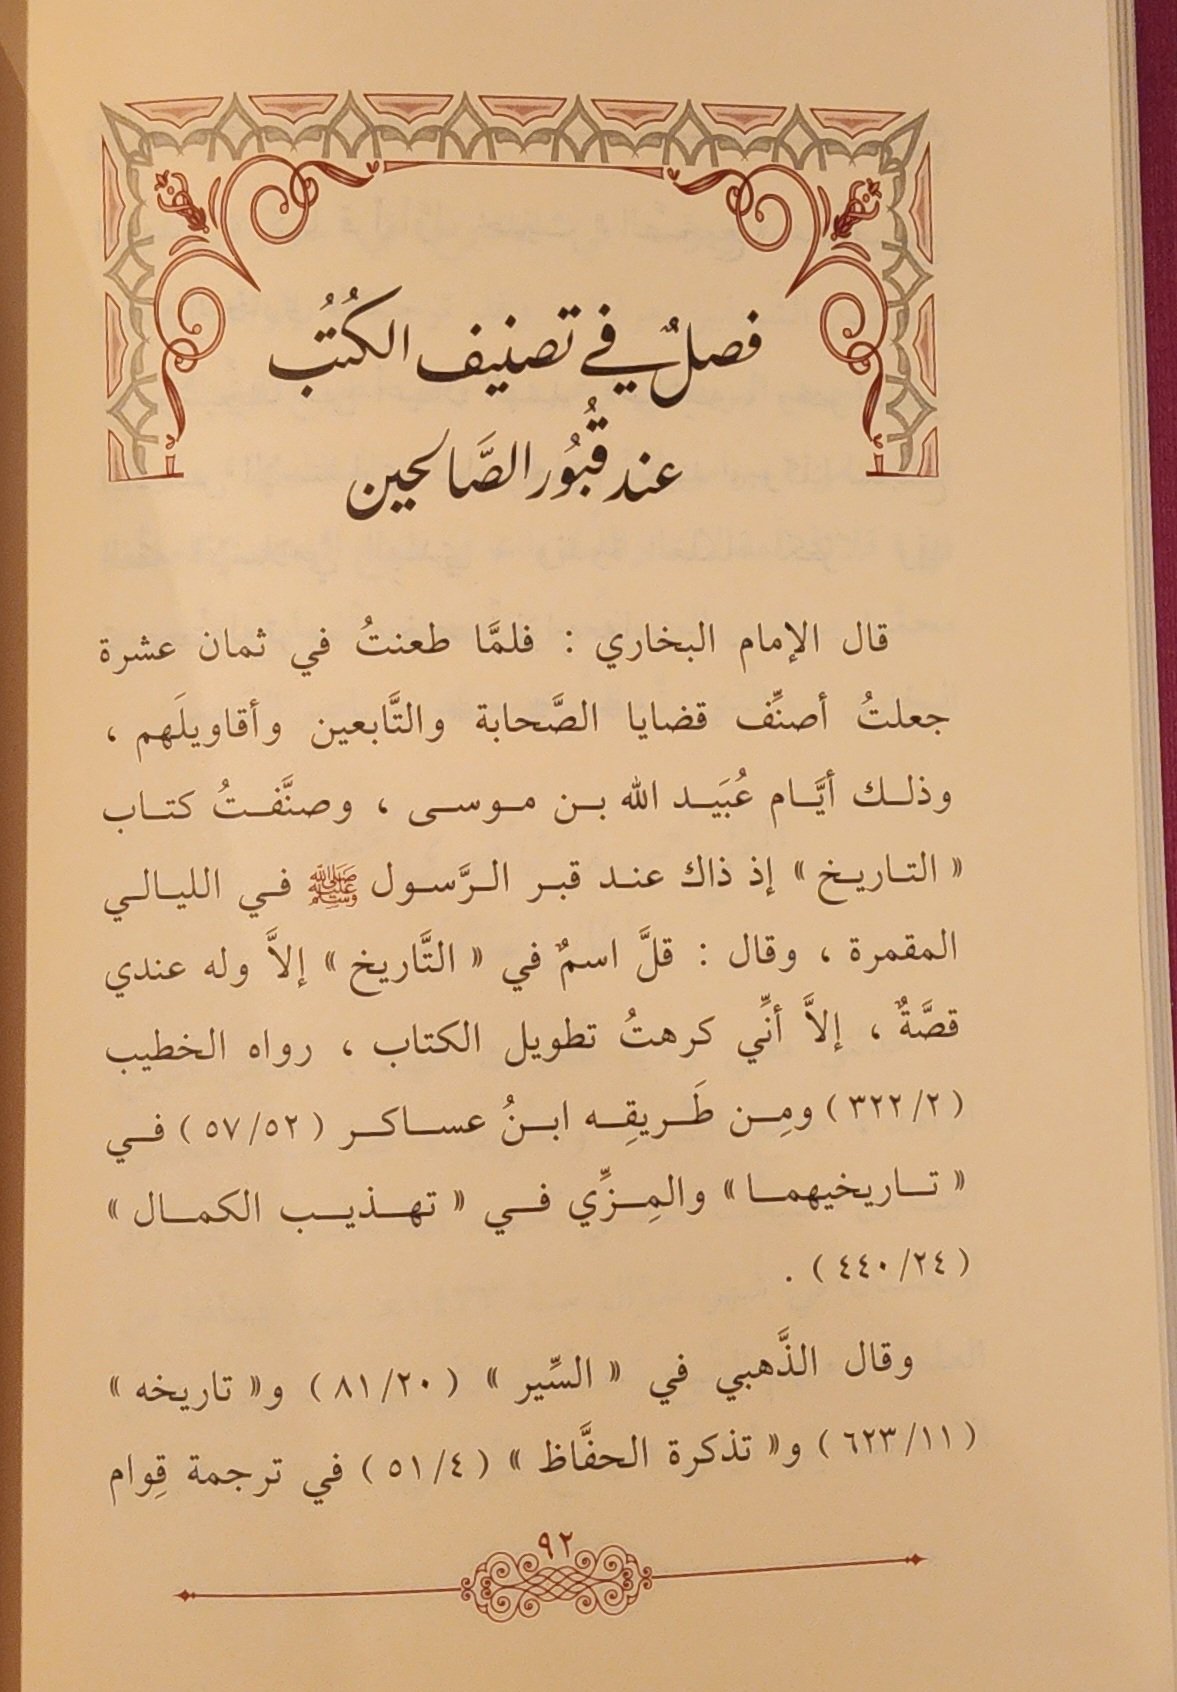 فصلٌ في تصنيف الكُتُب
عند قُبُور الصَّالحين
قال الإمام البخاري : فلمَّا طعنتُ في ثمان عشرة
جعلتُ أصنِّف قضايا الصَّحابة والتَّابعين وأقاويلَهم ،
وذلك أيَّام عُبَيد الله بن موسى ، وصنَّفتُ كتاب
« التاريخ » إذ ذاك عند قبر الرَّسول ﷺ في الليالي
المقمرة ، وقال : قلَّ اسمٌ في « التَّاريخ » إلاَّ وله عندي
قصَّةٌ ، إلاَّ أنِّي كرهتُ تطويل الكتاب ، رواه الخطيب
( ٣٢٢/٢ ) ومِن طَريقِه ابنُ عساكر ( ٥٧/٥٢ ) في
« تاريخيهما » والمِزِّي في « تهذيب الكمال »
( ٤٤٠/٢٤ ) .
وقال الذَّهبي في « السِّير » ( ٨١/٢٠ ) و« تاريخه »
( ٦٢٣/١١ ) و« تذكرة الحفَّاظ » ( ٥١/٤ ) في ترجمة قِوام
٩٢